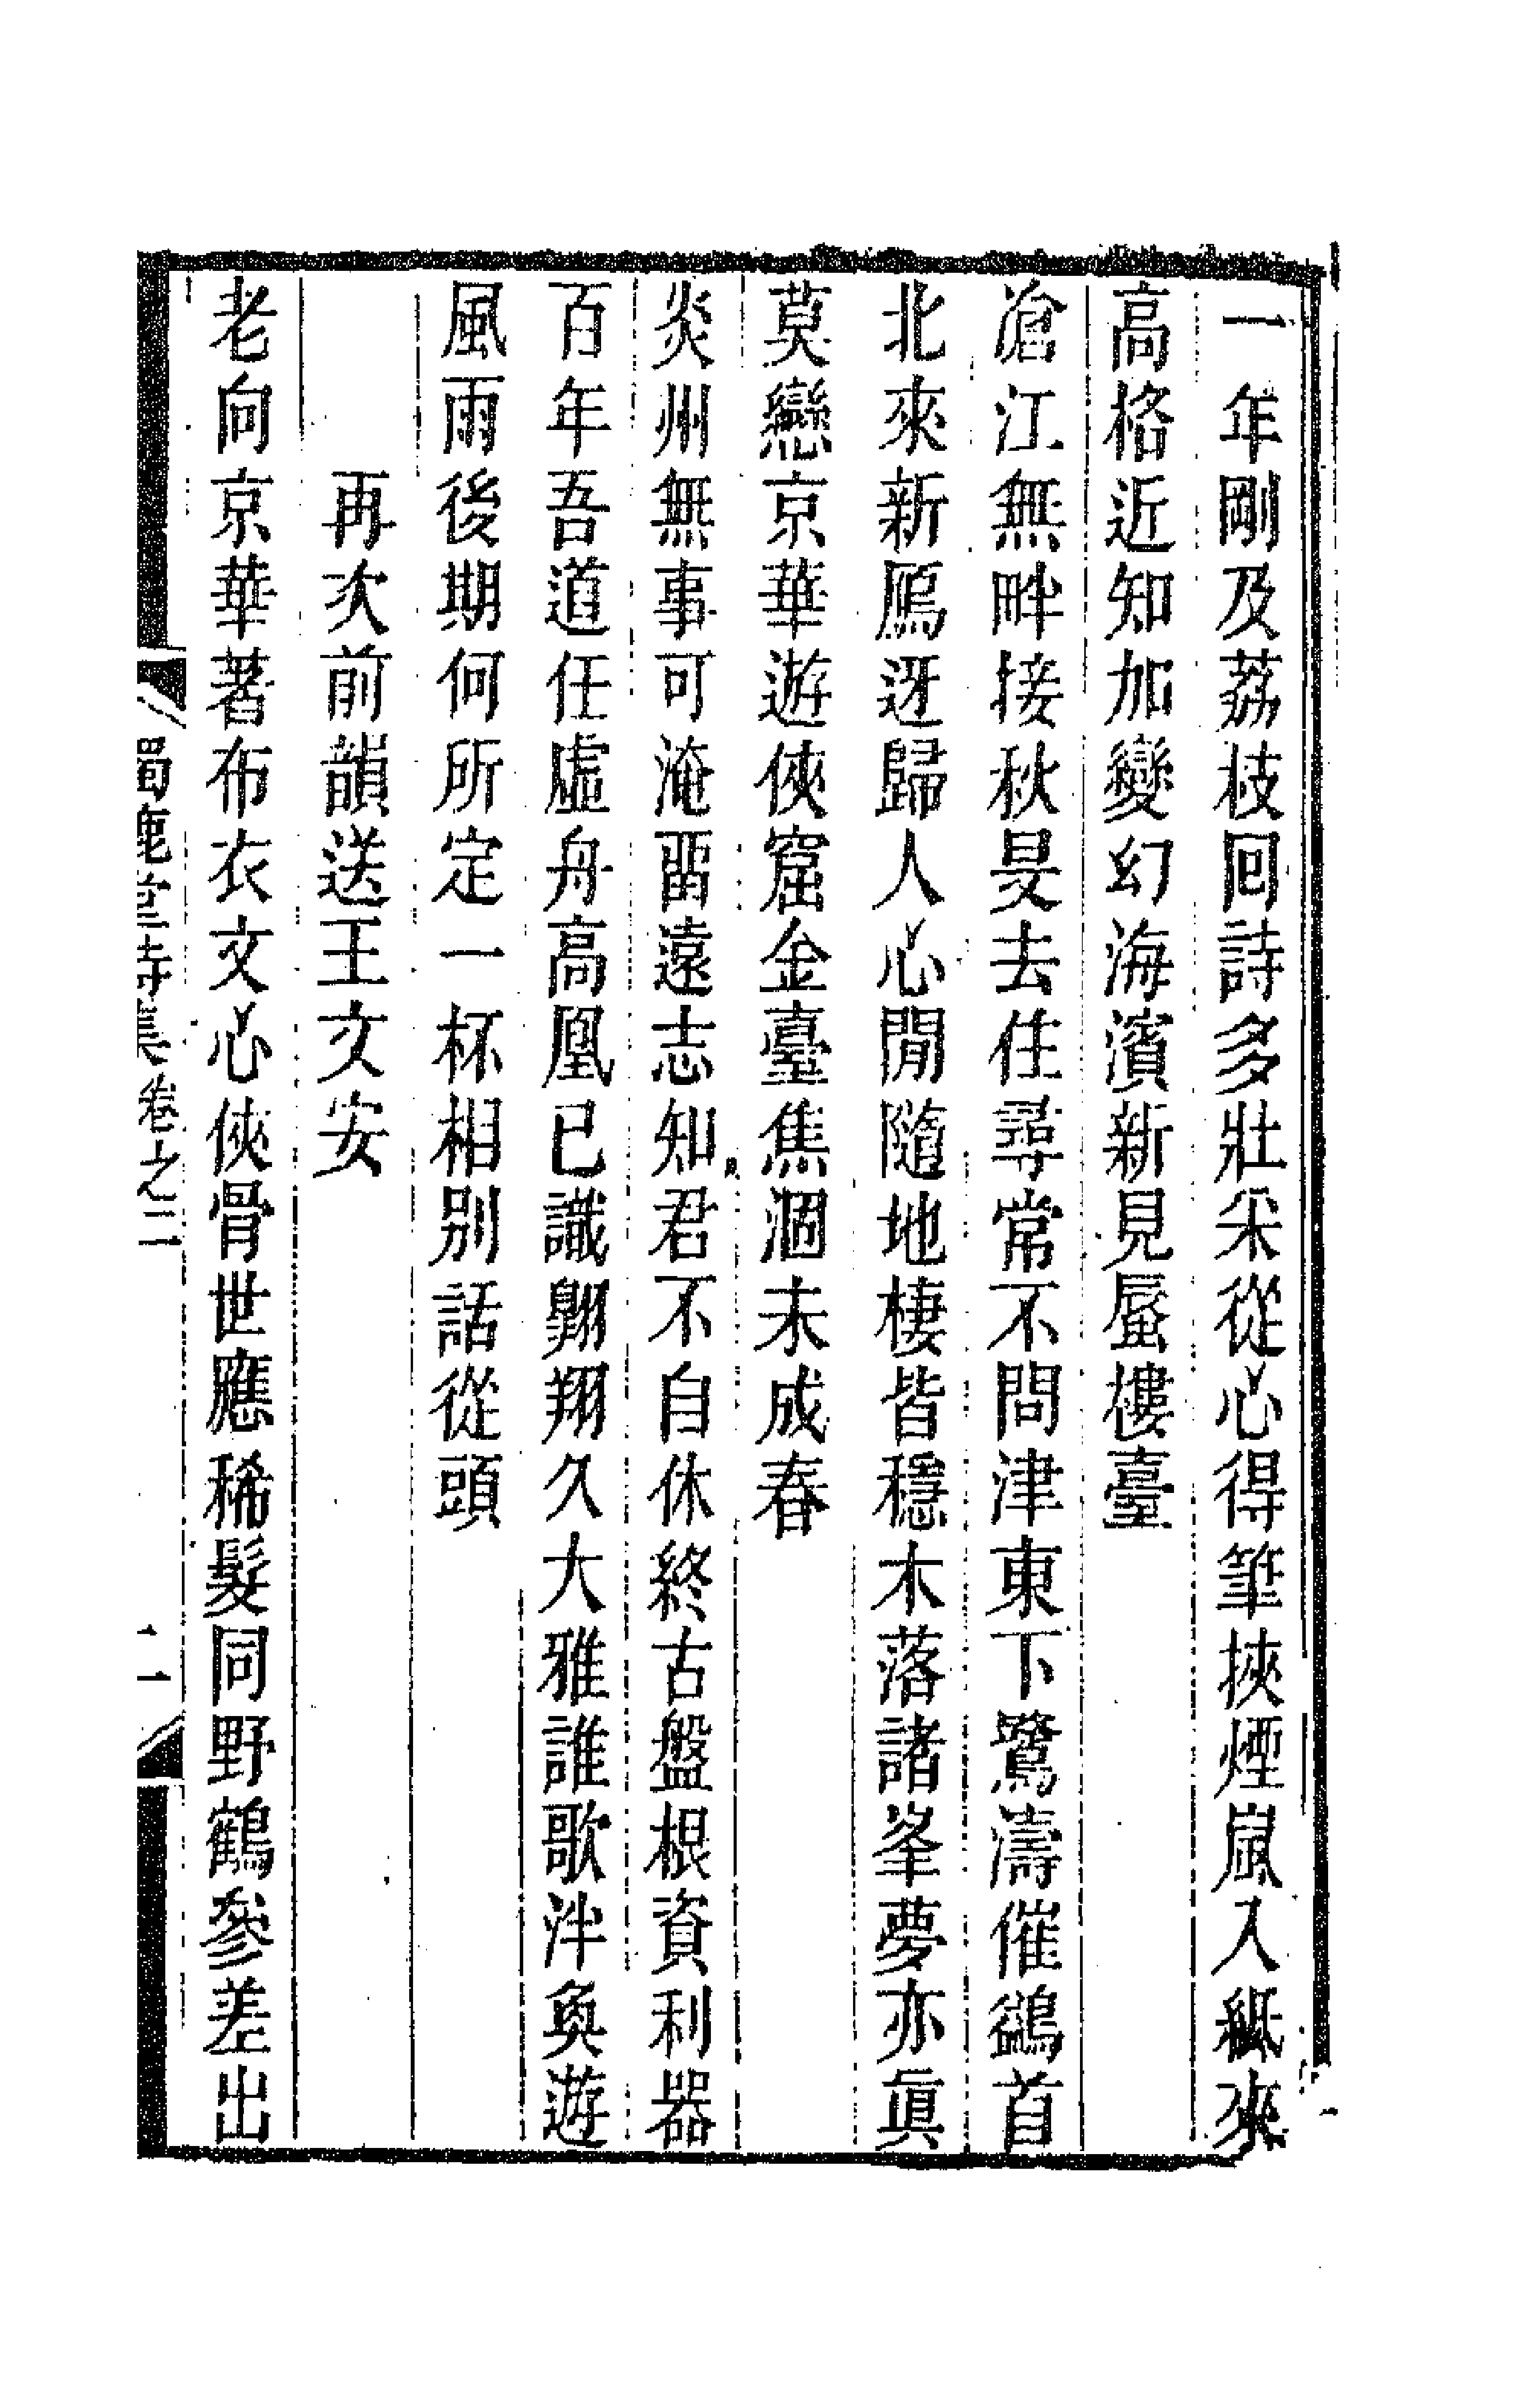 一年剛及荔枝回詩多壯采從心得筆挾煙嵐入紙來
高格近知加變幻海濱新見蜃樓臺
滄江無畔接秋旻去住尋常不問津東下鷺濤催鷁首
北來新鴈迓歸人心閒隨地棲皆穩木落諸峯夢亦眞
莫戀京華遊俠窟金臺焦涸未成春
炎州無事可淹畱遠志知君不自休終古盤根資利器
百年吾道任虛舟高凰已識翺翔久大雅誰歌泮奐遊
風雨後期何所定一杯相別話從頭
再次前韻送王文安
老向京華著布衣文心俠骨世應稀髮同野鶴參差出
獨鹿堂詩集卷之二
二